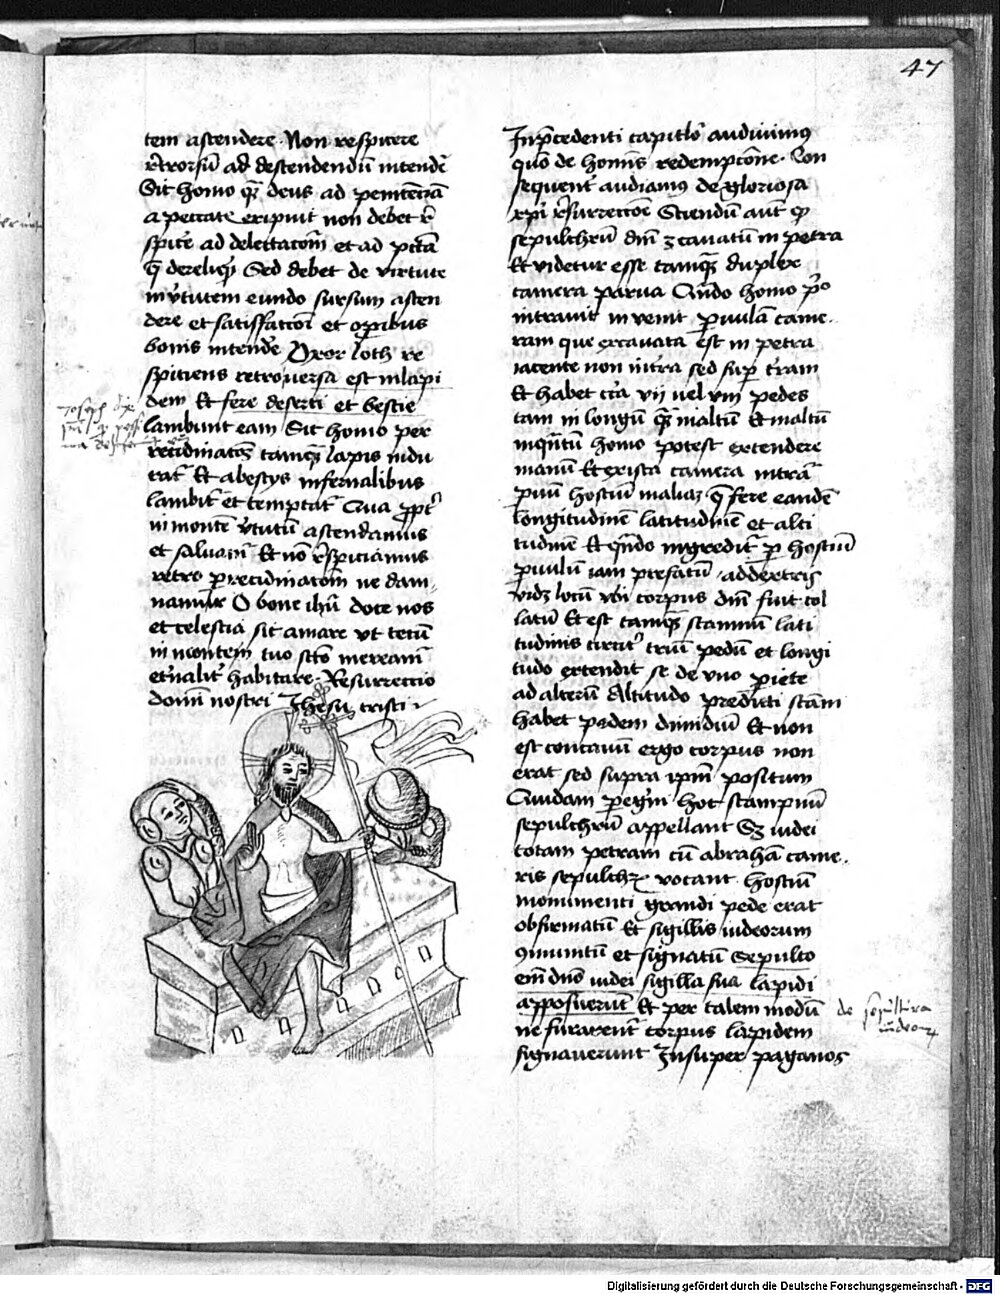 47
tem ascendere. Non respicere
rētrorsū ad descendendū intendē
Sit homo qʒ deus ad penitēciā
a peccate eripuit non debet rē
spicē ad delectacōm et ad pctā
q̄ dereliqʒ Sed debet de virtute
in v̄tutem eundo sursum ascen
dere et satisfactōi et oꝑibus
bonis intendē Vxor loth re
spiciens retroversa est in lapi
dem Et fere deserti et bestie
lambunt eam Sic homo per
recidinacōʒ tamqʒ lapis indu
rat̄ Et a bestys infernalibus
lambit̄ et temptat̄ Qua ꝓpt̄
in monte v̄tutū ascendamus
et salvam̄ Et nō r̄spiciamus
retro ꝑ recidinacōm ne dam
namur O bone ihū doce nos
et celestia sic amare vt tecū
in montem tuo scō meream̄
et̄nalit̄ habitare. Resurreccio
domī nostri Jhesu cristi
In p̄cedenti capitlo audivimꝰ
quō de homīs redempcōne. Con
sequent̄ audiamꝰ de gloriosa
xp̄i r̄surreccōe Sciendū aut̄ ꝙ
sepulchrū dm̄ ꝯcavatū in petra
Et videtur esse tamqʒ duplex
camera parva Qn̄do homo p̄o
intravit invenit ꝑvulā came
ram que excavata est in petra
iacente non intra sed sup̄ t̄ram
Et habet cc̄a vii vel viii pedes
tam in longū qʒ in altū Et in altū
inq̄ntū homo potest extendere
manū Et ex ista camera intrat̄
ꝑvū hostiū in aliaʒ q̄ fere eandē
longitudinē latitudinē et alti
tudinē Et qn̄do ingredit̄ ꝑ hostiū
ꝑvulū iam prefatū ad dextris
videʒ locū vbi corpus dm̄ fuit col
latū Et est tamqʒ scamnū lati
tudinis circit̄ triū pedū et longi
tudo extendit se de vno ꝑiete
ad alterū Altitudo predicti scam̄
habet pedem dimidiū Et non
est concavū ergo corpus non
erat sed supra ip̄m positum
Quidam ꝑegʼni hoc scampnū
sepulchrū appellant Sʒ iudei
totam petram cū abrahā came
ris sepulchrꝝ vocant Hostiū
monumenti grandi pede erat
obfirmatū Et sigillis iudeorum
ꝯmunitū et signatū Sepulto
em̄ dn̄o iudei sigilla sua lapidi
apposuerūt Et per talem modū
ne furarent̄ corpus lapidem
signaverunt Insuper paganos
de sepultura
iudeoꝝ
Digitalisierung gefördert durch die Deutsche Forschungsgemeinschaft - DFG